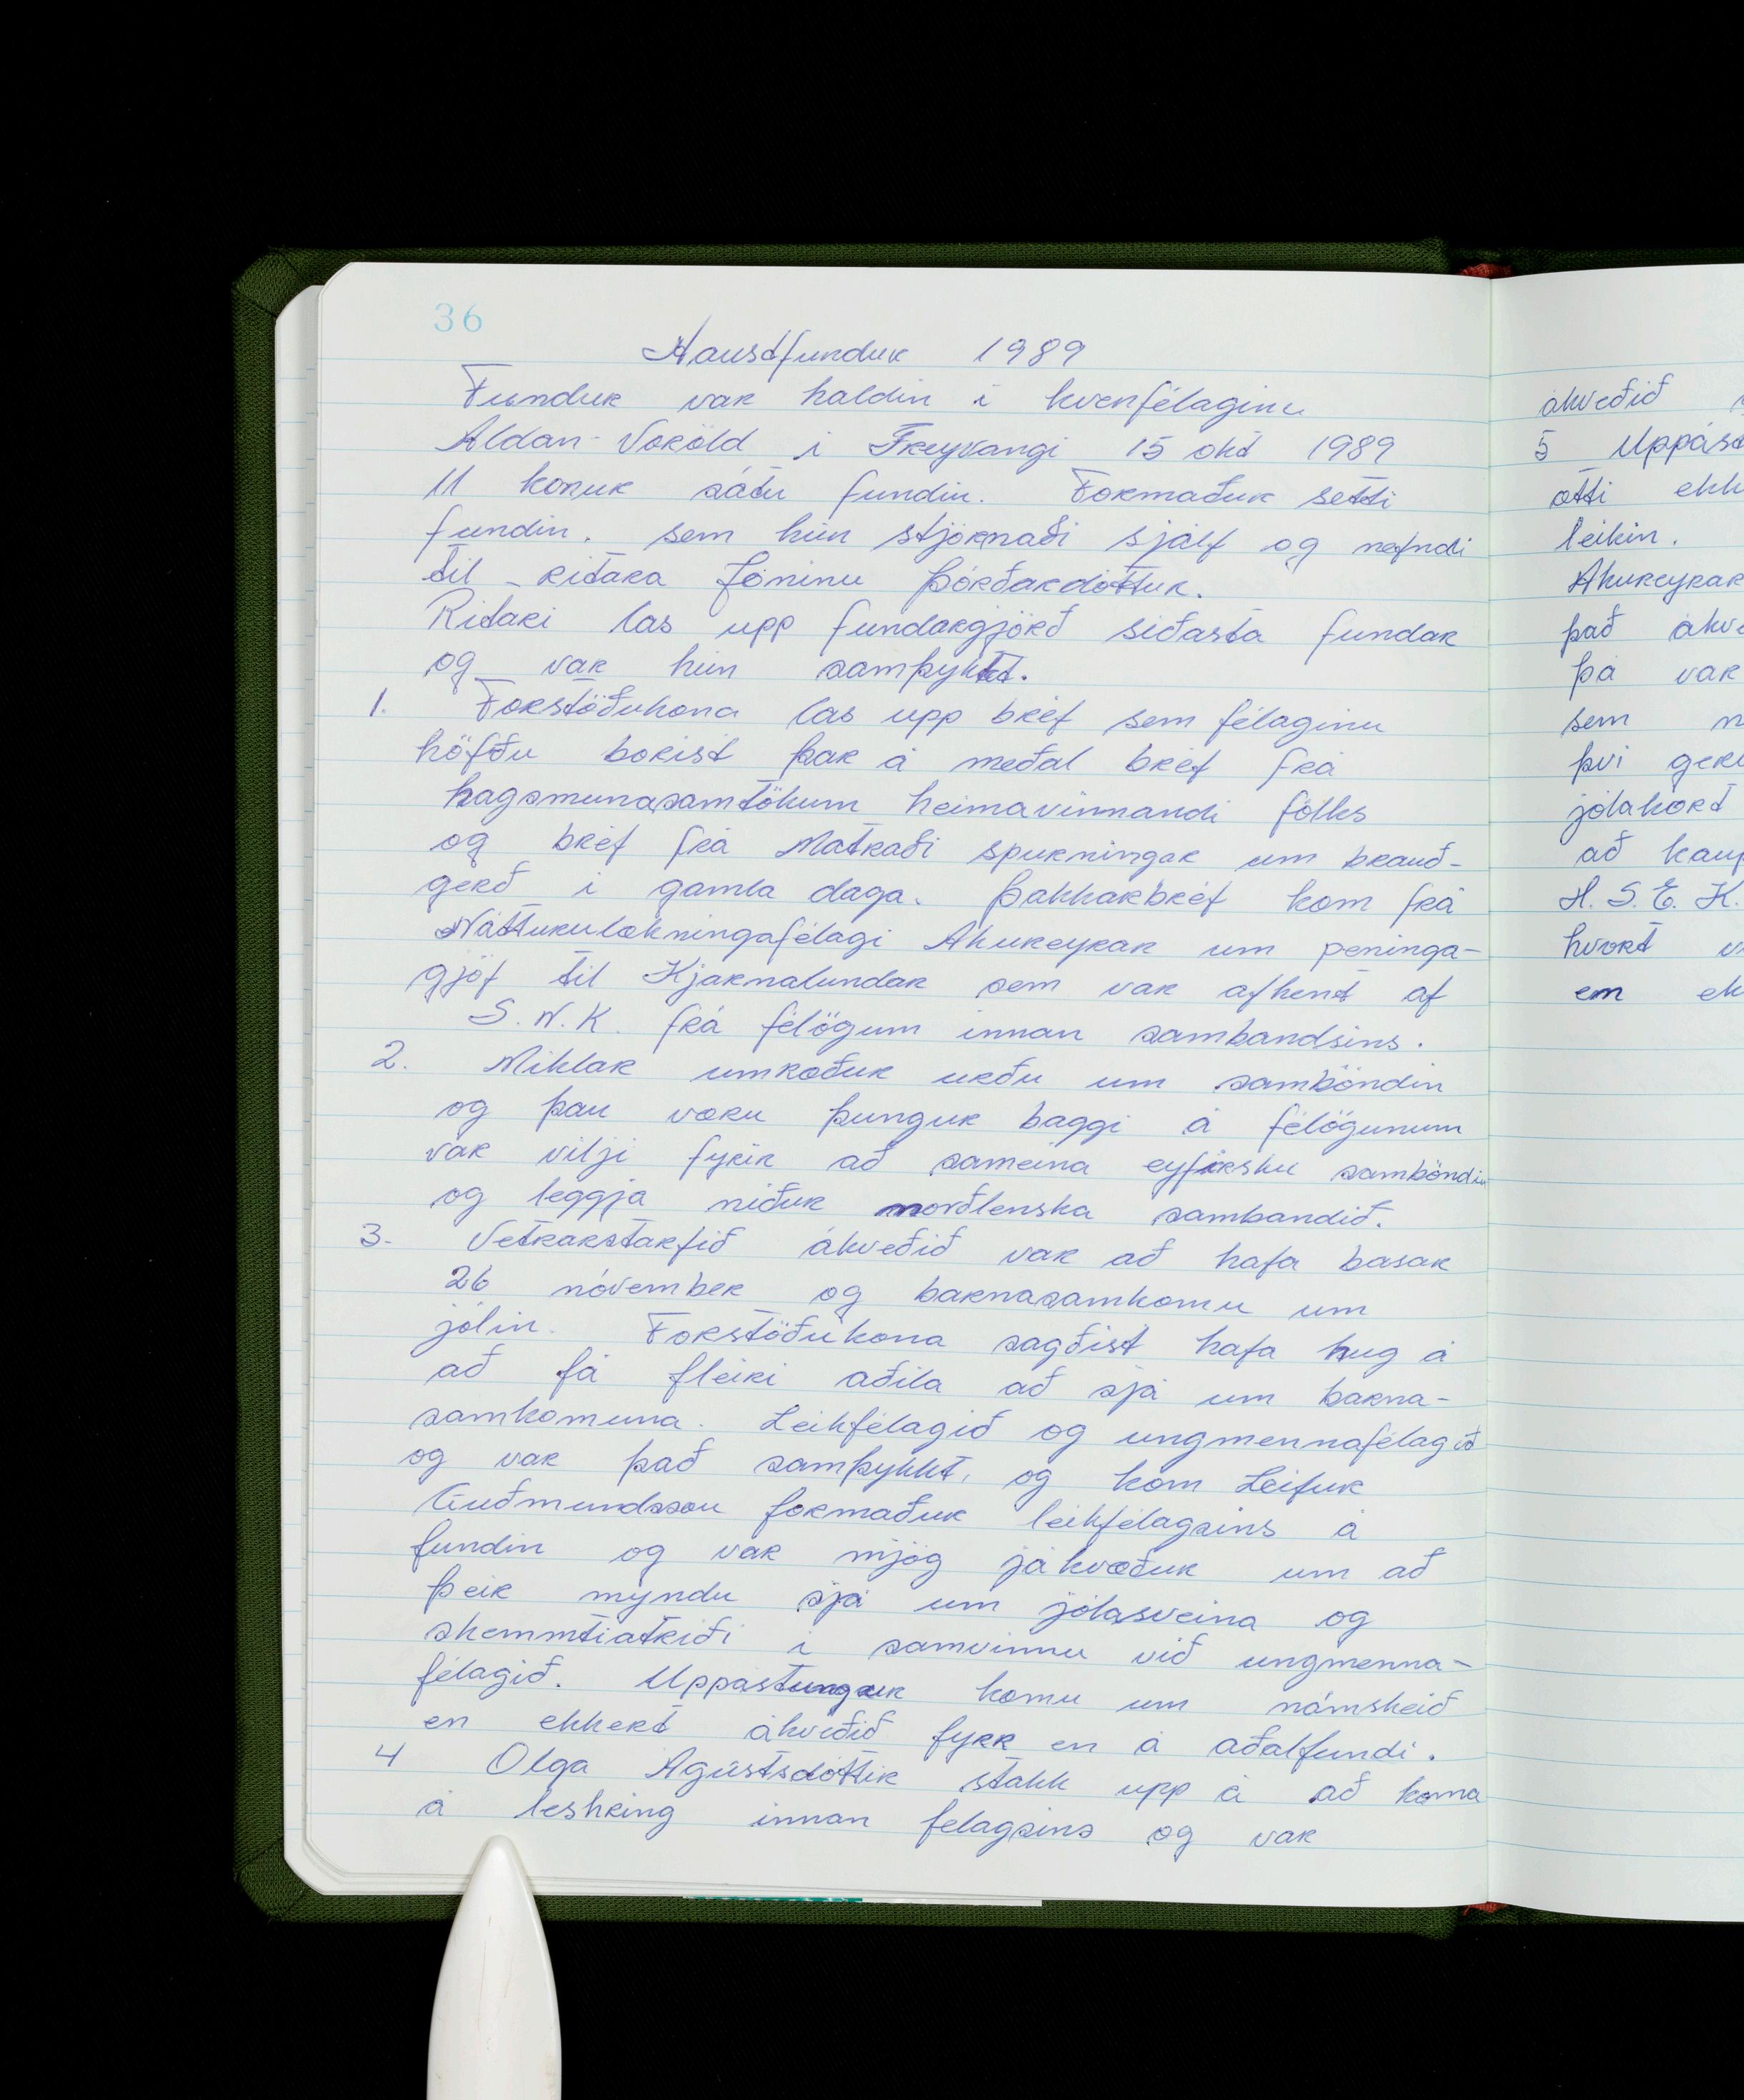 36
Haustfundur 1989
Fundur var haldin í kvenfélaginu
Aldan-Voröld í Freyvangi 15 okt 1989
11 konur sátu fundin. Formaður setti
fundin. sem hún stjórnaði sjálf og nefndi
til ritara Jóninu Þórðardóttur.
Ritari las upp fundargjörð síðasta fundar
og var hún samþykkt.
1. Forstöðukona las upp bréf sem félaginu
höfðu borist þar á meðal bréf frá
hagsmunasamtökum heimavinnandi fólks
og bréf frá Matráði spurningar um brauð-
gerð í gamla daga. Þakkarbréf kom frá
Náttúrulækningafélagi Akureyrar um peninga-
gjöf til Kjarnalundar sem var afhent af
S.N.K. frá félögum innan sambandsins.
2. Miklar umræður urðu um samböndin
og þau væru þungur baggi á félögunum
var vilji fyrir að sameina eyfirsku samböndin
og leggja niður norðlenska sambandið.
3. Vetrarstarfið ákveðið var að hafa basar
26 nóvember og barnasamkomu um
jólin. Forstöðukona sagðist hafa hug á
að fá fleiri aðila að sjá um barna-
samkomuna. Leikfélagið og ungmennafélagið
og var það samþykkt, og kom Leifur
Guðmundsson formaður leikfélagsins á
fundin og var mjög jákvæður um að
þeir myndu sjá um jólasveina og
skemmtiatriði í samvinnu við ungmenna-
félagið. Uppástungur komu um námskeið
en ekkert ákveðið fyrr en á aðalfundi.
4 Olga Agústsdóttir stakk upp á að koma
á leshring innan felagsins og var
ákveðið
5 Uppást
ætti ekk
leikin.
Akureyrar
það ákve
þá var
sem
því ger
jólakort
að kaup
H.S.E.K.
hvort
em ek